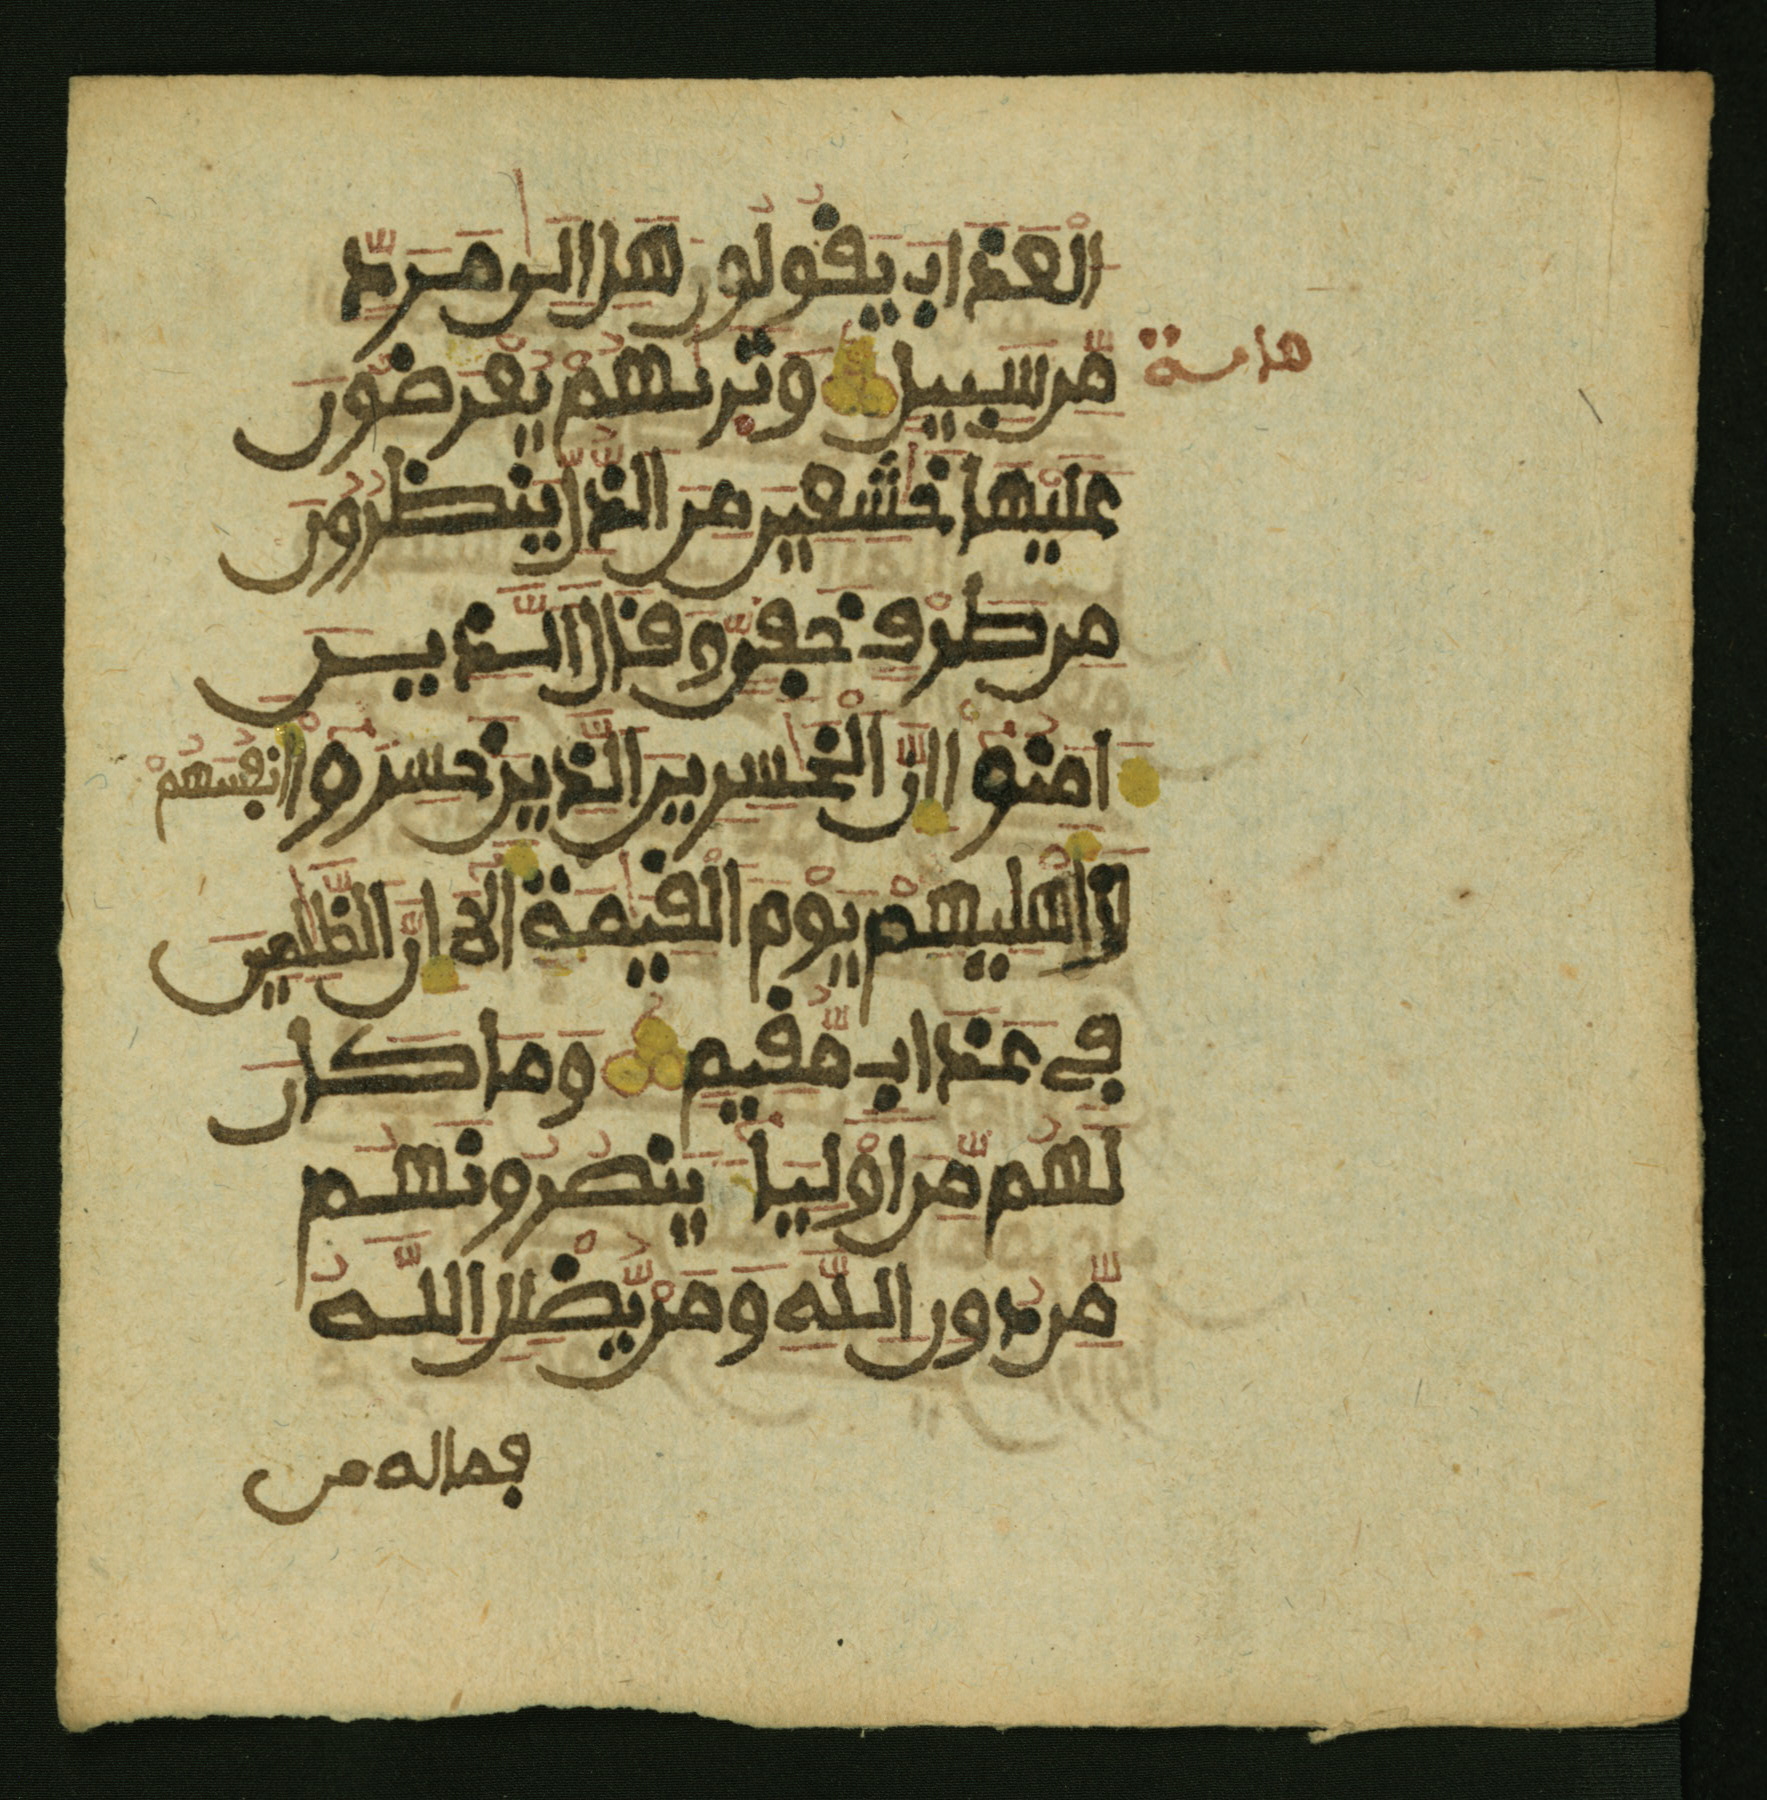 الْعَذَابَ يَقُولُونَ هَلِ الَىٰ مَرَدّٖ
هامسة
مِّن سَبِيلٖ وَتَرٜىٰهُمْ يُعْرَضُونَ
عَلَيْهَا خَٰشِعِينَ مِنَ الذُّلِّ يَنظُرُونَ
مِن طَرْفٍ خَفِيّٖ وَقَالَ الَّذِينَ
ءَامَنُوٓا إِنَّ الْخَٰسِرِينَ الَّذِينَ خَسِرُوٓا أَنفُسَهُمْ
وَأَهْلِيهِمْ يَوْمَ الْقِيَٰمَةِ أَلَآ إِنَّ الظَّٰلِمِينَ
فِي عَذَابٖ مُّقِيمٖ وَمَا كَانَ
لَهُم مِّنَ اَوْلِيَآءَ يَنصُرُونَهُم
مِّن دُونِ اللَّهِ وَمَنْ يُّضْلِلِ اللَّهُ
فما له من